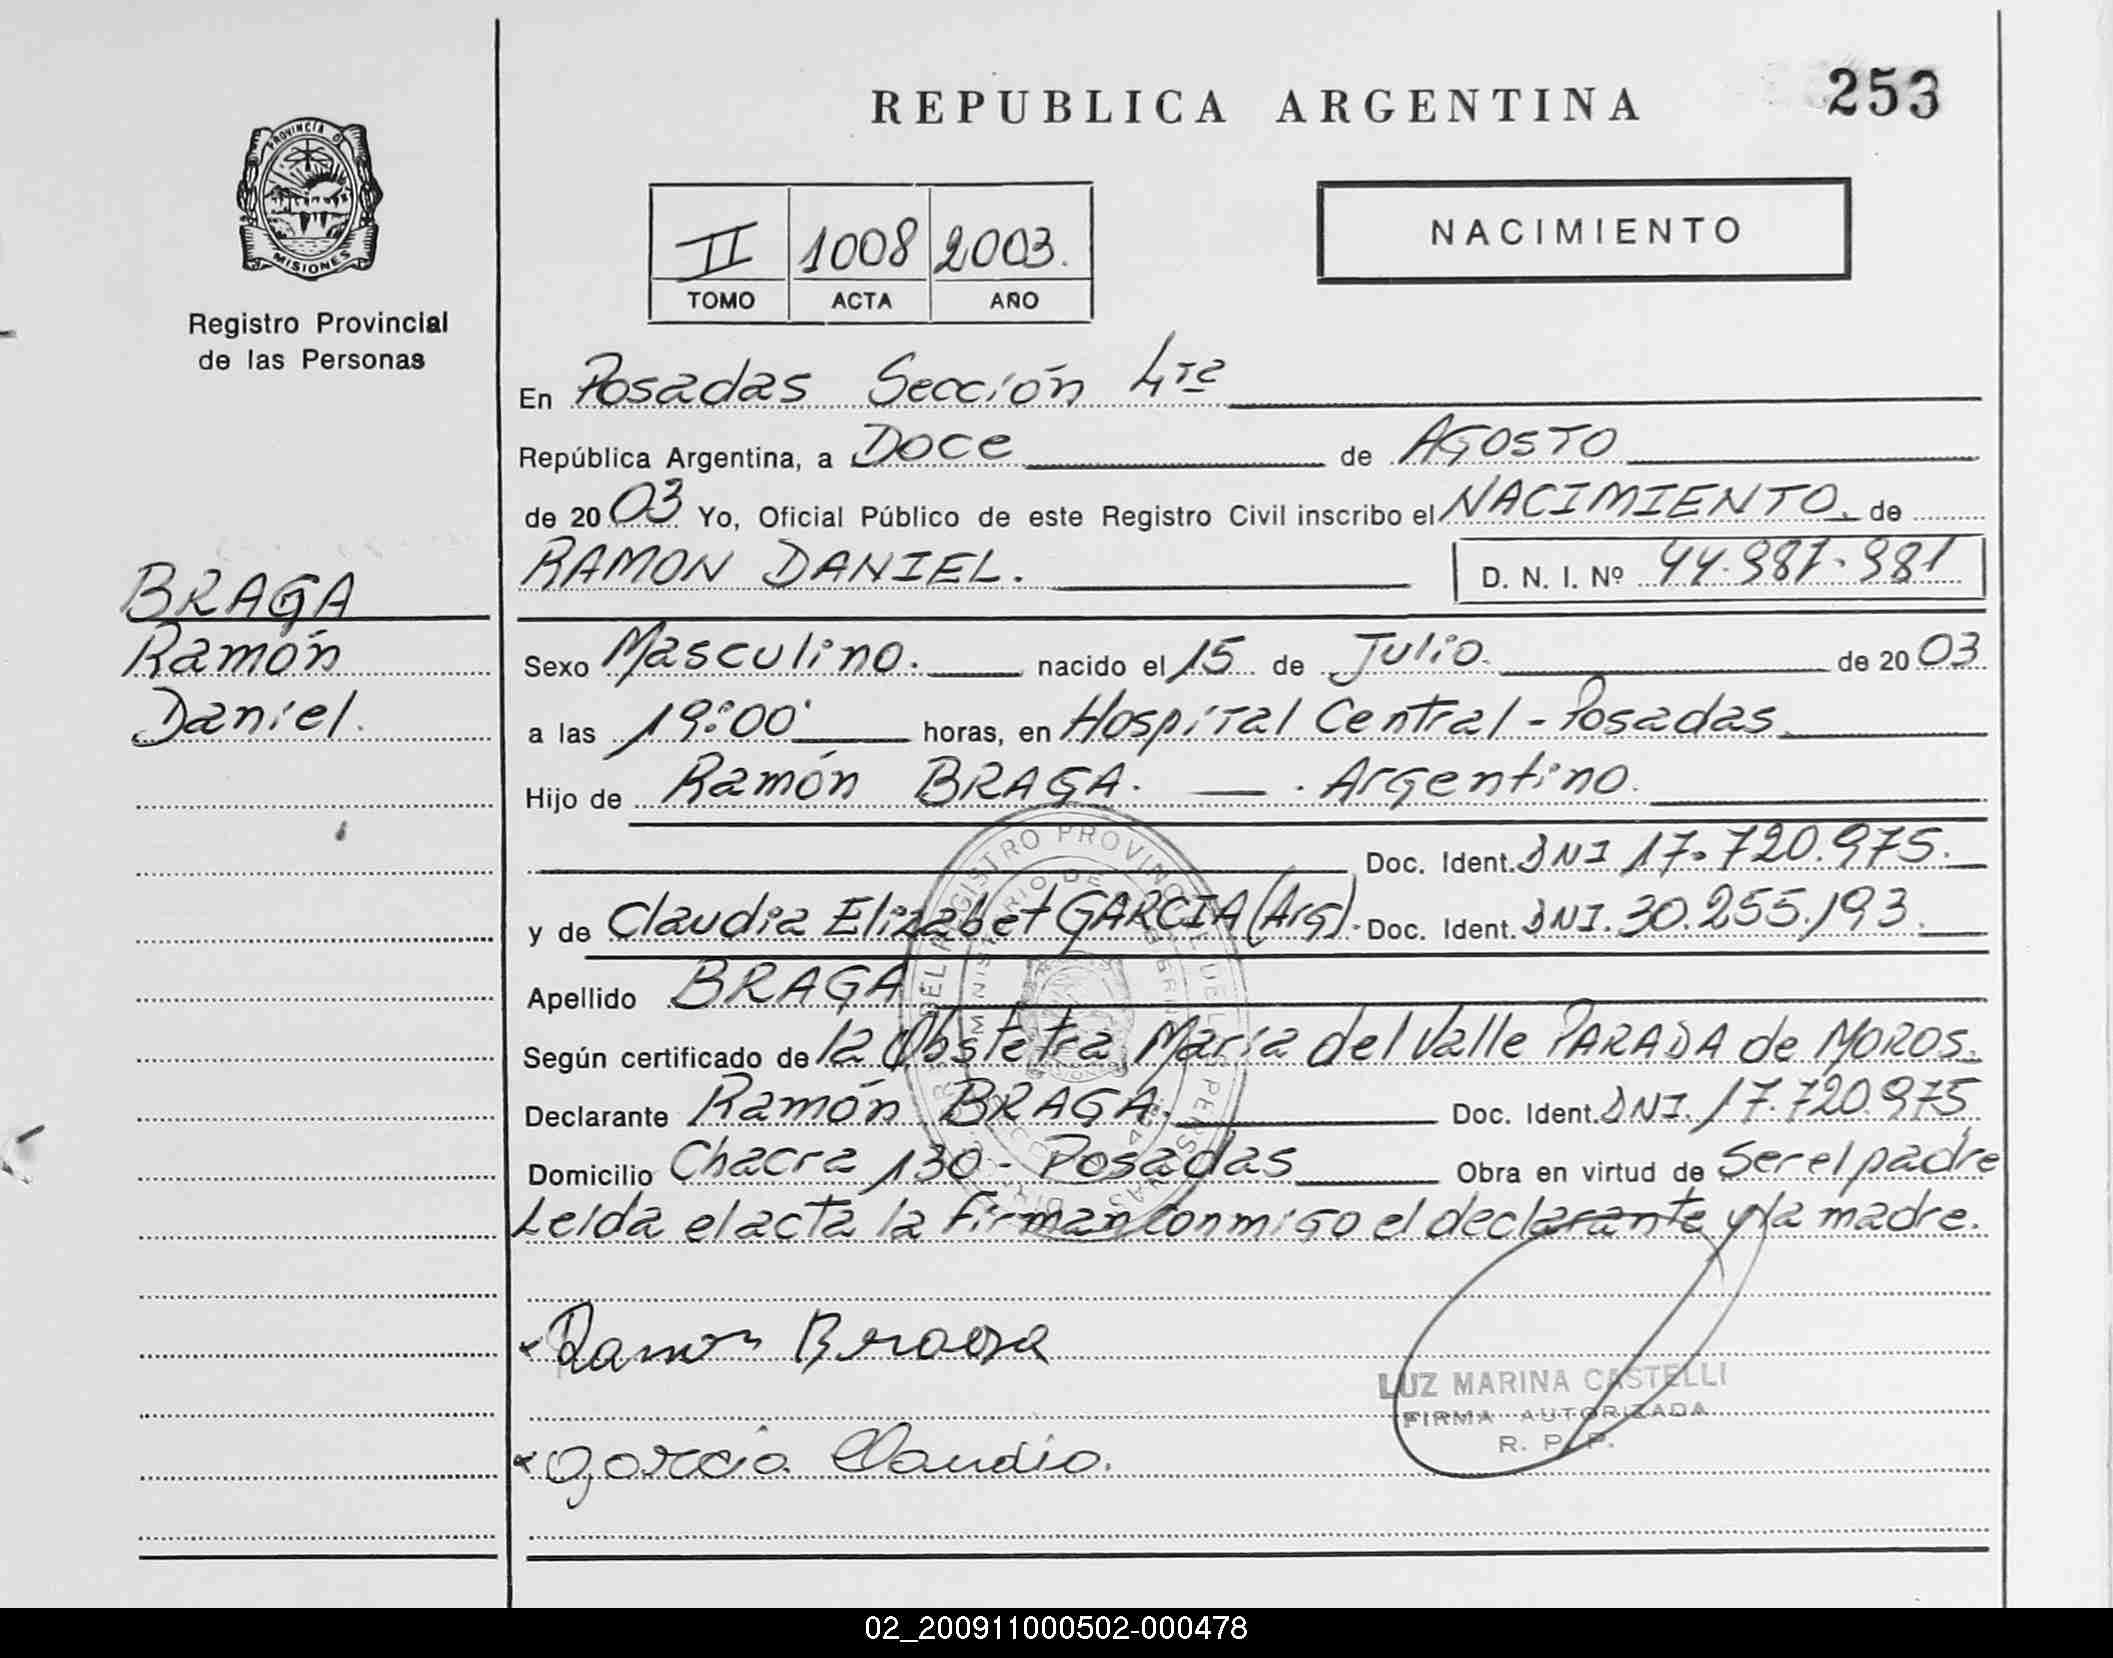 REPUBLICA ARGENTINA
253
PROVINCIA DE
MISIONES
Registro Provincial
de las Personas
II 1008 2003.
TOMO ACTA AÑO
NACIMIENTO
En Posadas Sección 4ta
República Argentina, a Doce de AGOSTO
de 2003 Yo, Oficial Público de este Registro Civil inscribo el NACIMIENTO. de
RAMON DANIEL. D. N. I. Nº
BRAGA
Ramón
Daniel.
Sexo Masculino. nacido el 15 de Julio. de 2003
a las 19:00' horas, en Hospital Central - Posadas
Hijo de Ramón BRAGA. — . Argentino.
Doc. Ident. DNI 17.720.975.
y de Claudia Elizabet GARCIA (Arg). Doc. Ident. DNI. 30.255.193.
Apellido BRAGA
Según certificado de la Obstetra María del Valle PARADA de MOROS.
Declarante Ramón BRAGA. Doc. Ident. DNI. 17.720.975
Domicilio Chacra 130 - Posadas Obra en virtud de Ser el padre
Leída el acta la firman conmigo el declarante y la madre.
Ramon Braga
Garcia Claudia.
LUZ MARINA CASTELLI
FIRMA AUTORIZADA
R. P. P.
02_200911000502-000478